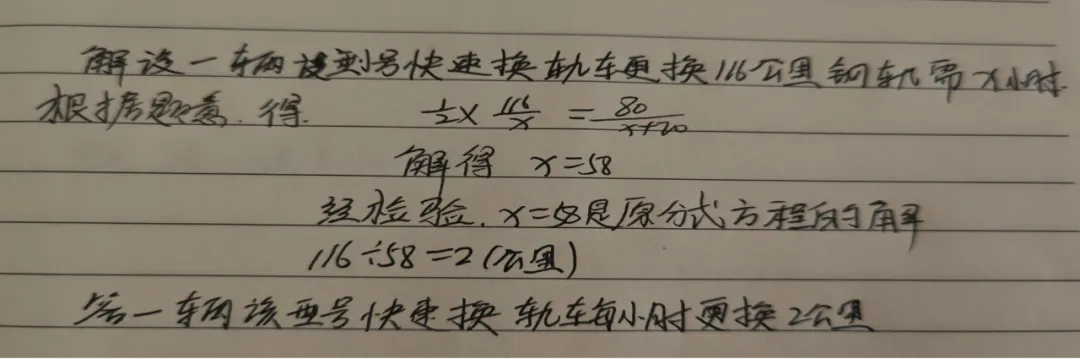 解设一车两该型号快速换轨车更换116公里钢轨需x小时.
根据题意.得. 1/2 × 116/x = 80/(x+20)
解得 x=58
经检验.x=58是原分式方程的解
116÷58=2(公里)
答一车两该型号快速换轨车每小时更换2公里